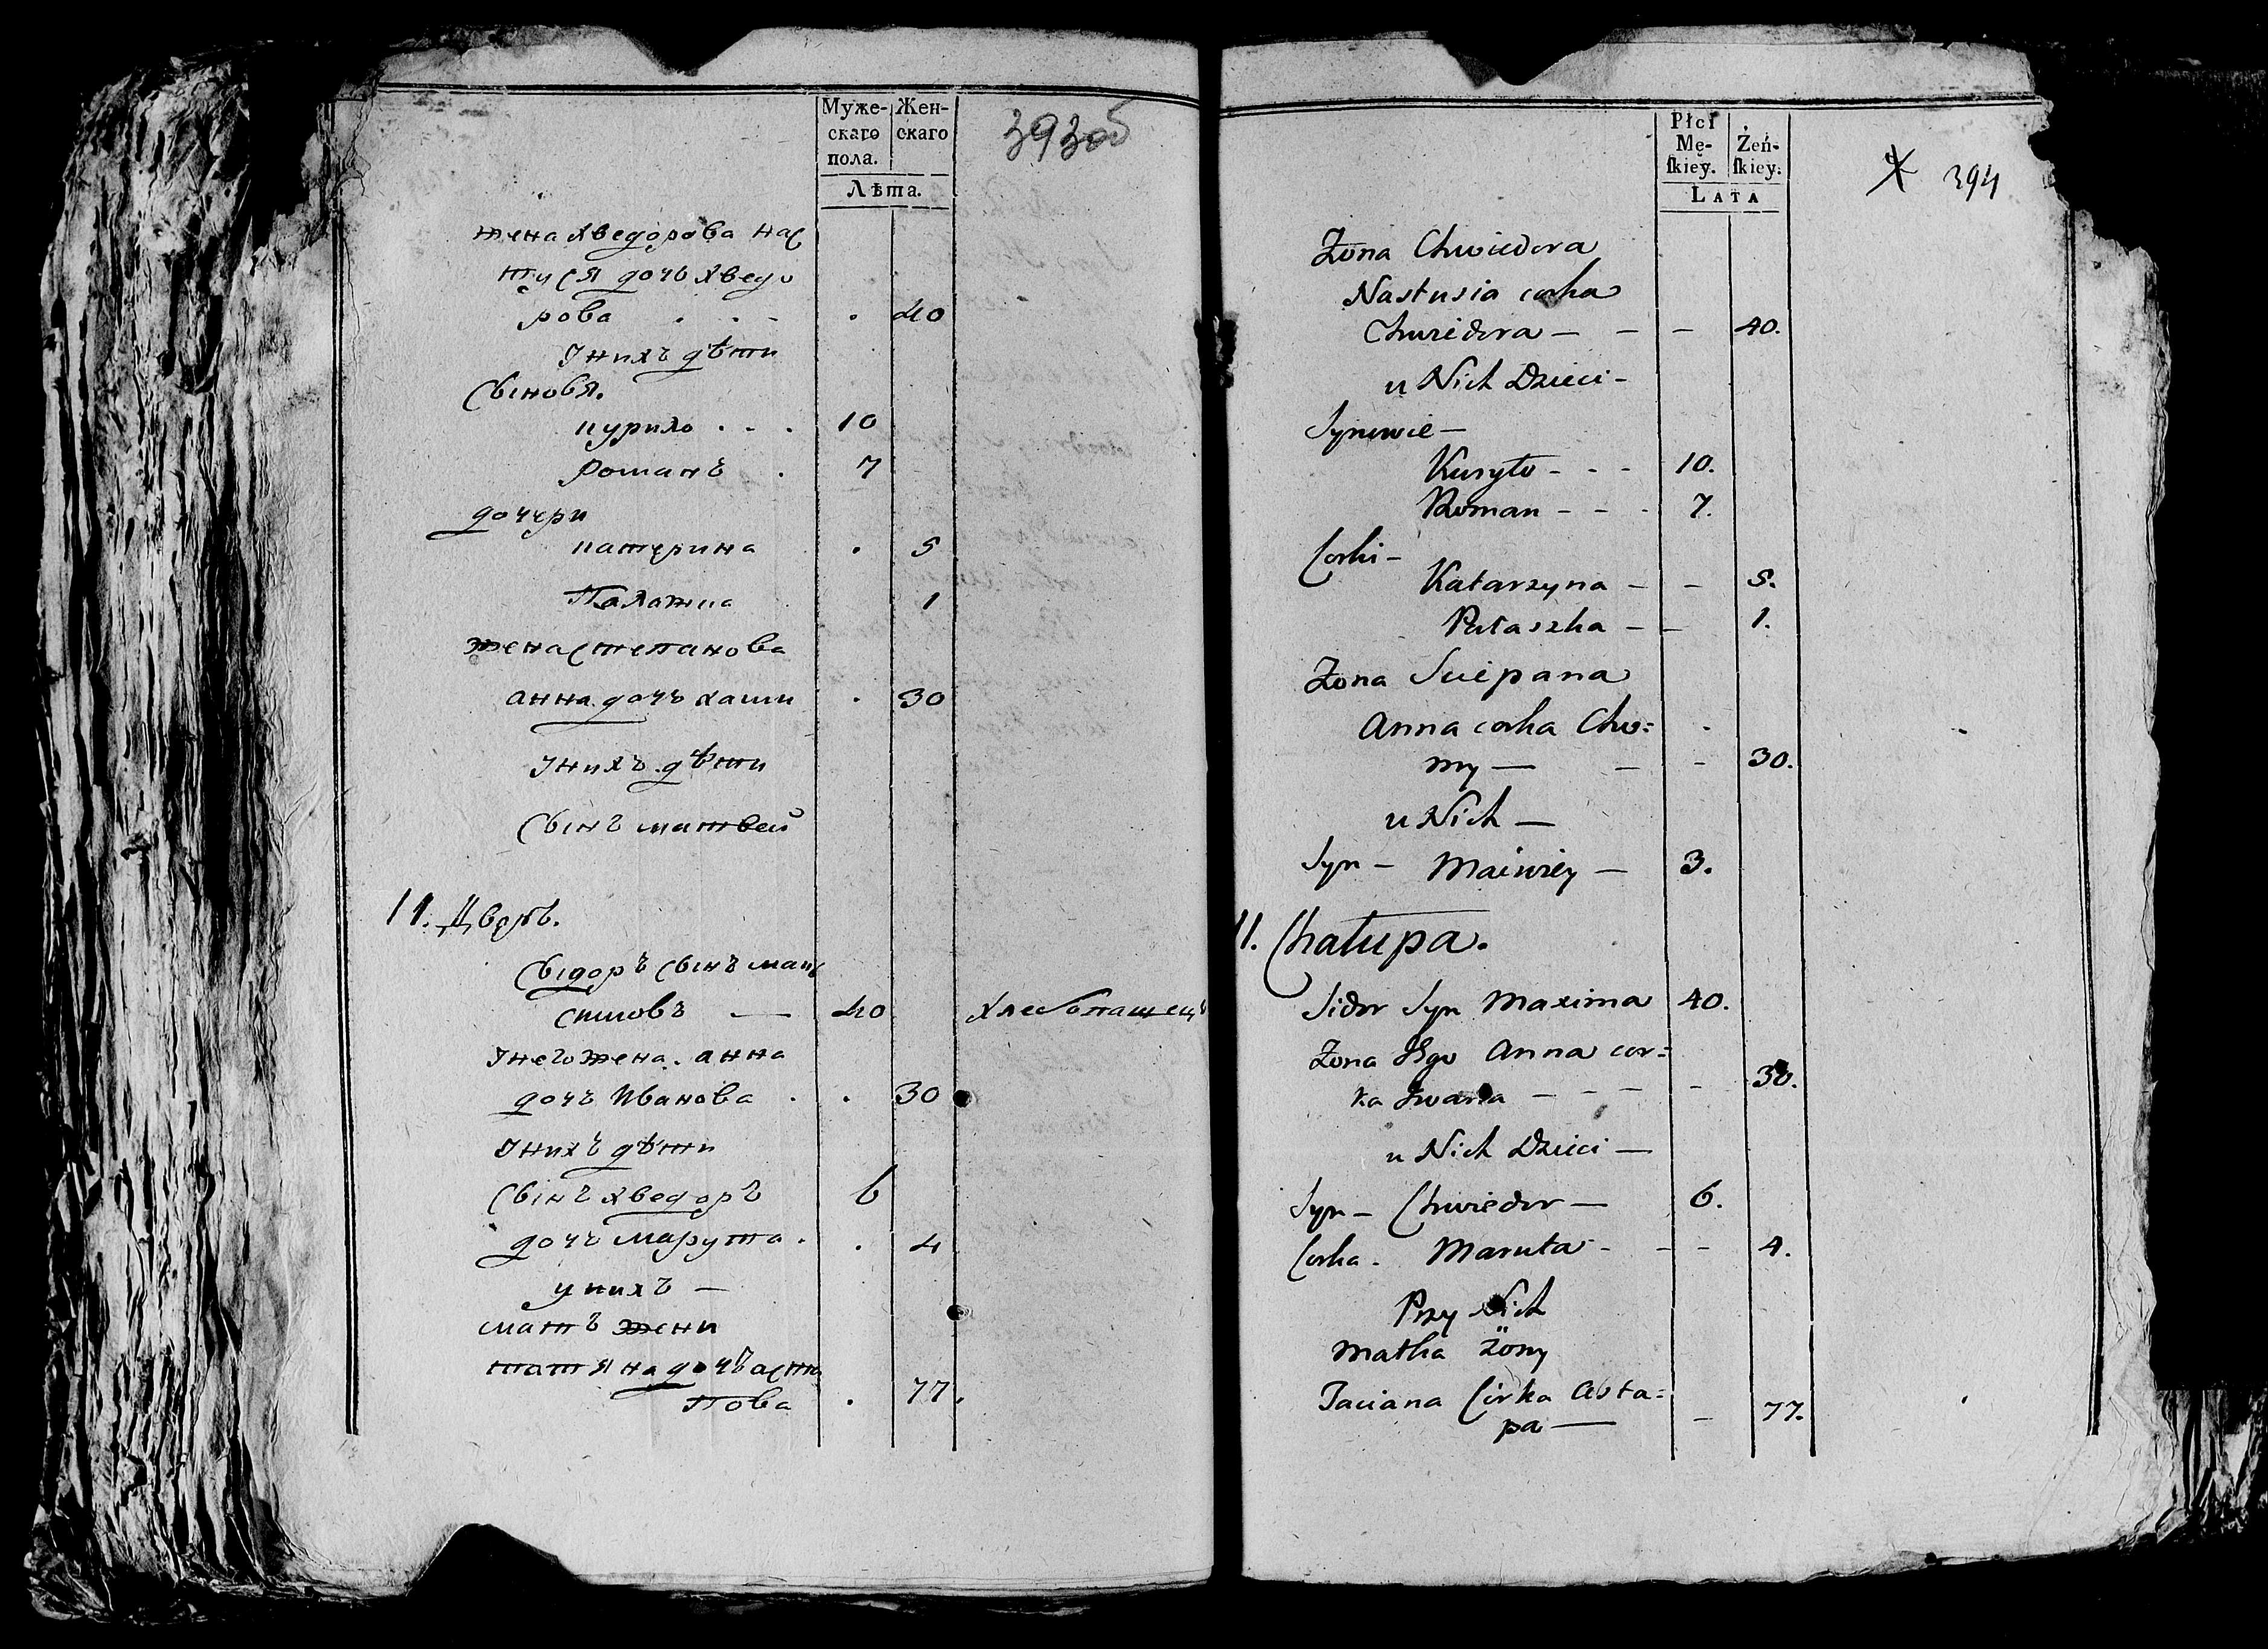 Муже-
скаго
пола.
Жен-
скаго
Лѣта.
393об
жена хведорова нас
туся дочъ хведо
рова . . - . 40
Унихъ дѣти
Сынов​я.
курило . . . 10
романъ . 7
дочери
катерина . 5
Палажка 1
жена степанова
анна дочъ хоми . 30
Унихъ дѣти
Сынъ матвей
11. Дворъ.
Сыдоръ сынъ мак
симовъ — 40 хлебопашецъ
Унего жена. анна
дочъ Иванова . . 30
Унихъ дѣти
Сынъ хведоръ 6
дочъ марута . . 4
унихъ —
матъ жени
татяна дочъ аста
пова . 77.
Płci
Mę-
ſkiey.
Żeń-
ſkiey.
LATA
394
Żona Chwiedora
Nastusia corka
Chwiedora — — – 40.
u Nich Dzieci -
Synowie —
Kuryło - - - 10.
Roman - - - 7.
Corki -
Katarzyna — – 5.
Pałaszka — — 1.
Żona Sciepana
Anna corka Cho=
my — — - 30.
u Nich —
Syn — Maciwiey — 3.
11. Chałupa.
Sidor Syn Maxima 40.
Żona Jego Anna cor=
ka Iwana — - — - 30.
u Nich Dzieci —
Syn — Chwiedor — 6.
Corka - Maruta - - - 4.
Przy Nich
Matka żony
Taciana Corka Asta=
pa — – 77.